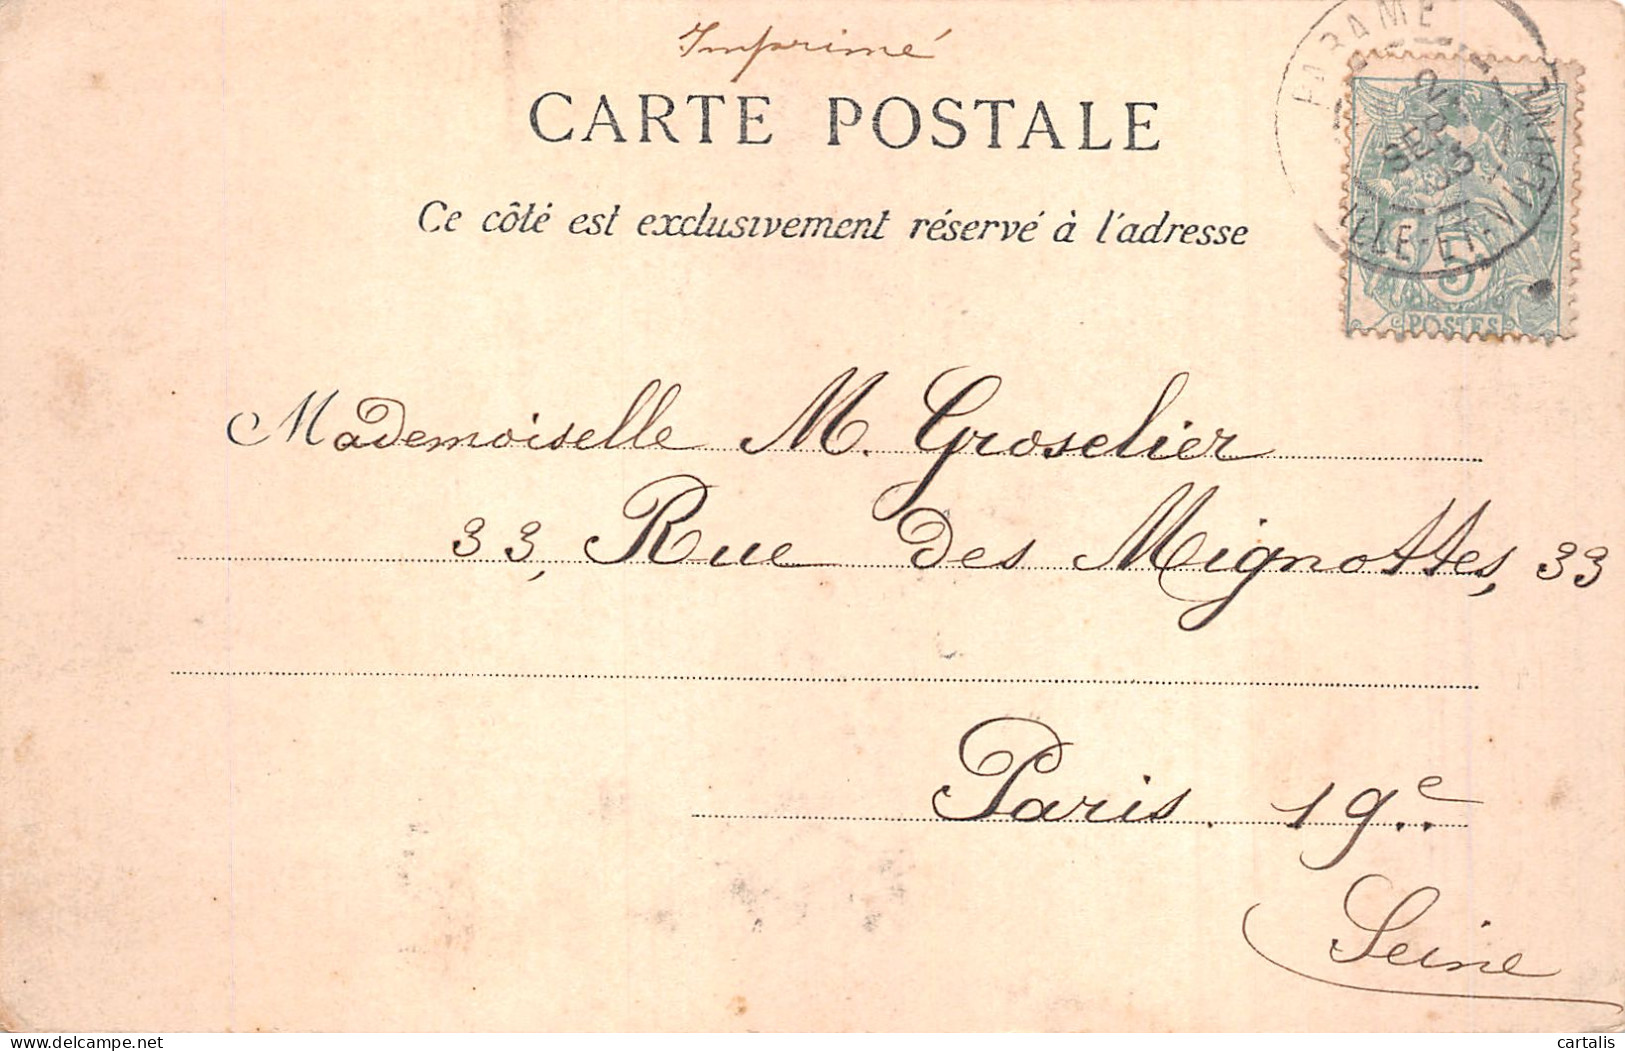 Imprimé
CARTE POSTALE
Ce côté est exclusivement réservé à l'adresse
PARAMÉ
SEPT
ILLE-ET-VILAINE
5
POSTES
Mademoiselle M. Groselier
33, Rue des Mignottes, 33
Paris. 19e
Seine
delcampe.net
cartalis